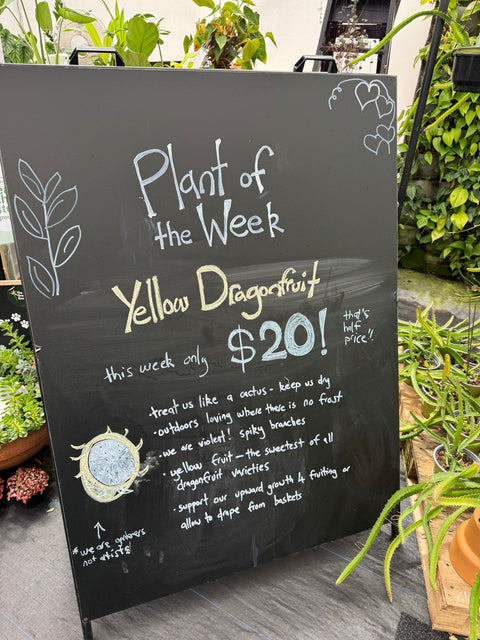 Plant of
the Week
Yellow Dragonfruit
this week only $20!
that's
half
price!!
treat us like a cactus - keep us dry
• outdoors loving where there is no frost
• we are violent! spiky branches
• yellow fruit - the sweetest of all
dragonfruit varieties
• support our upward growth 4 fruiting or
allow to drape from baskets
* we are gardeners
not artists!